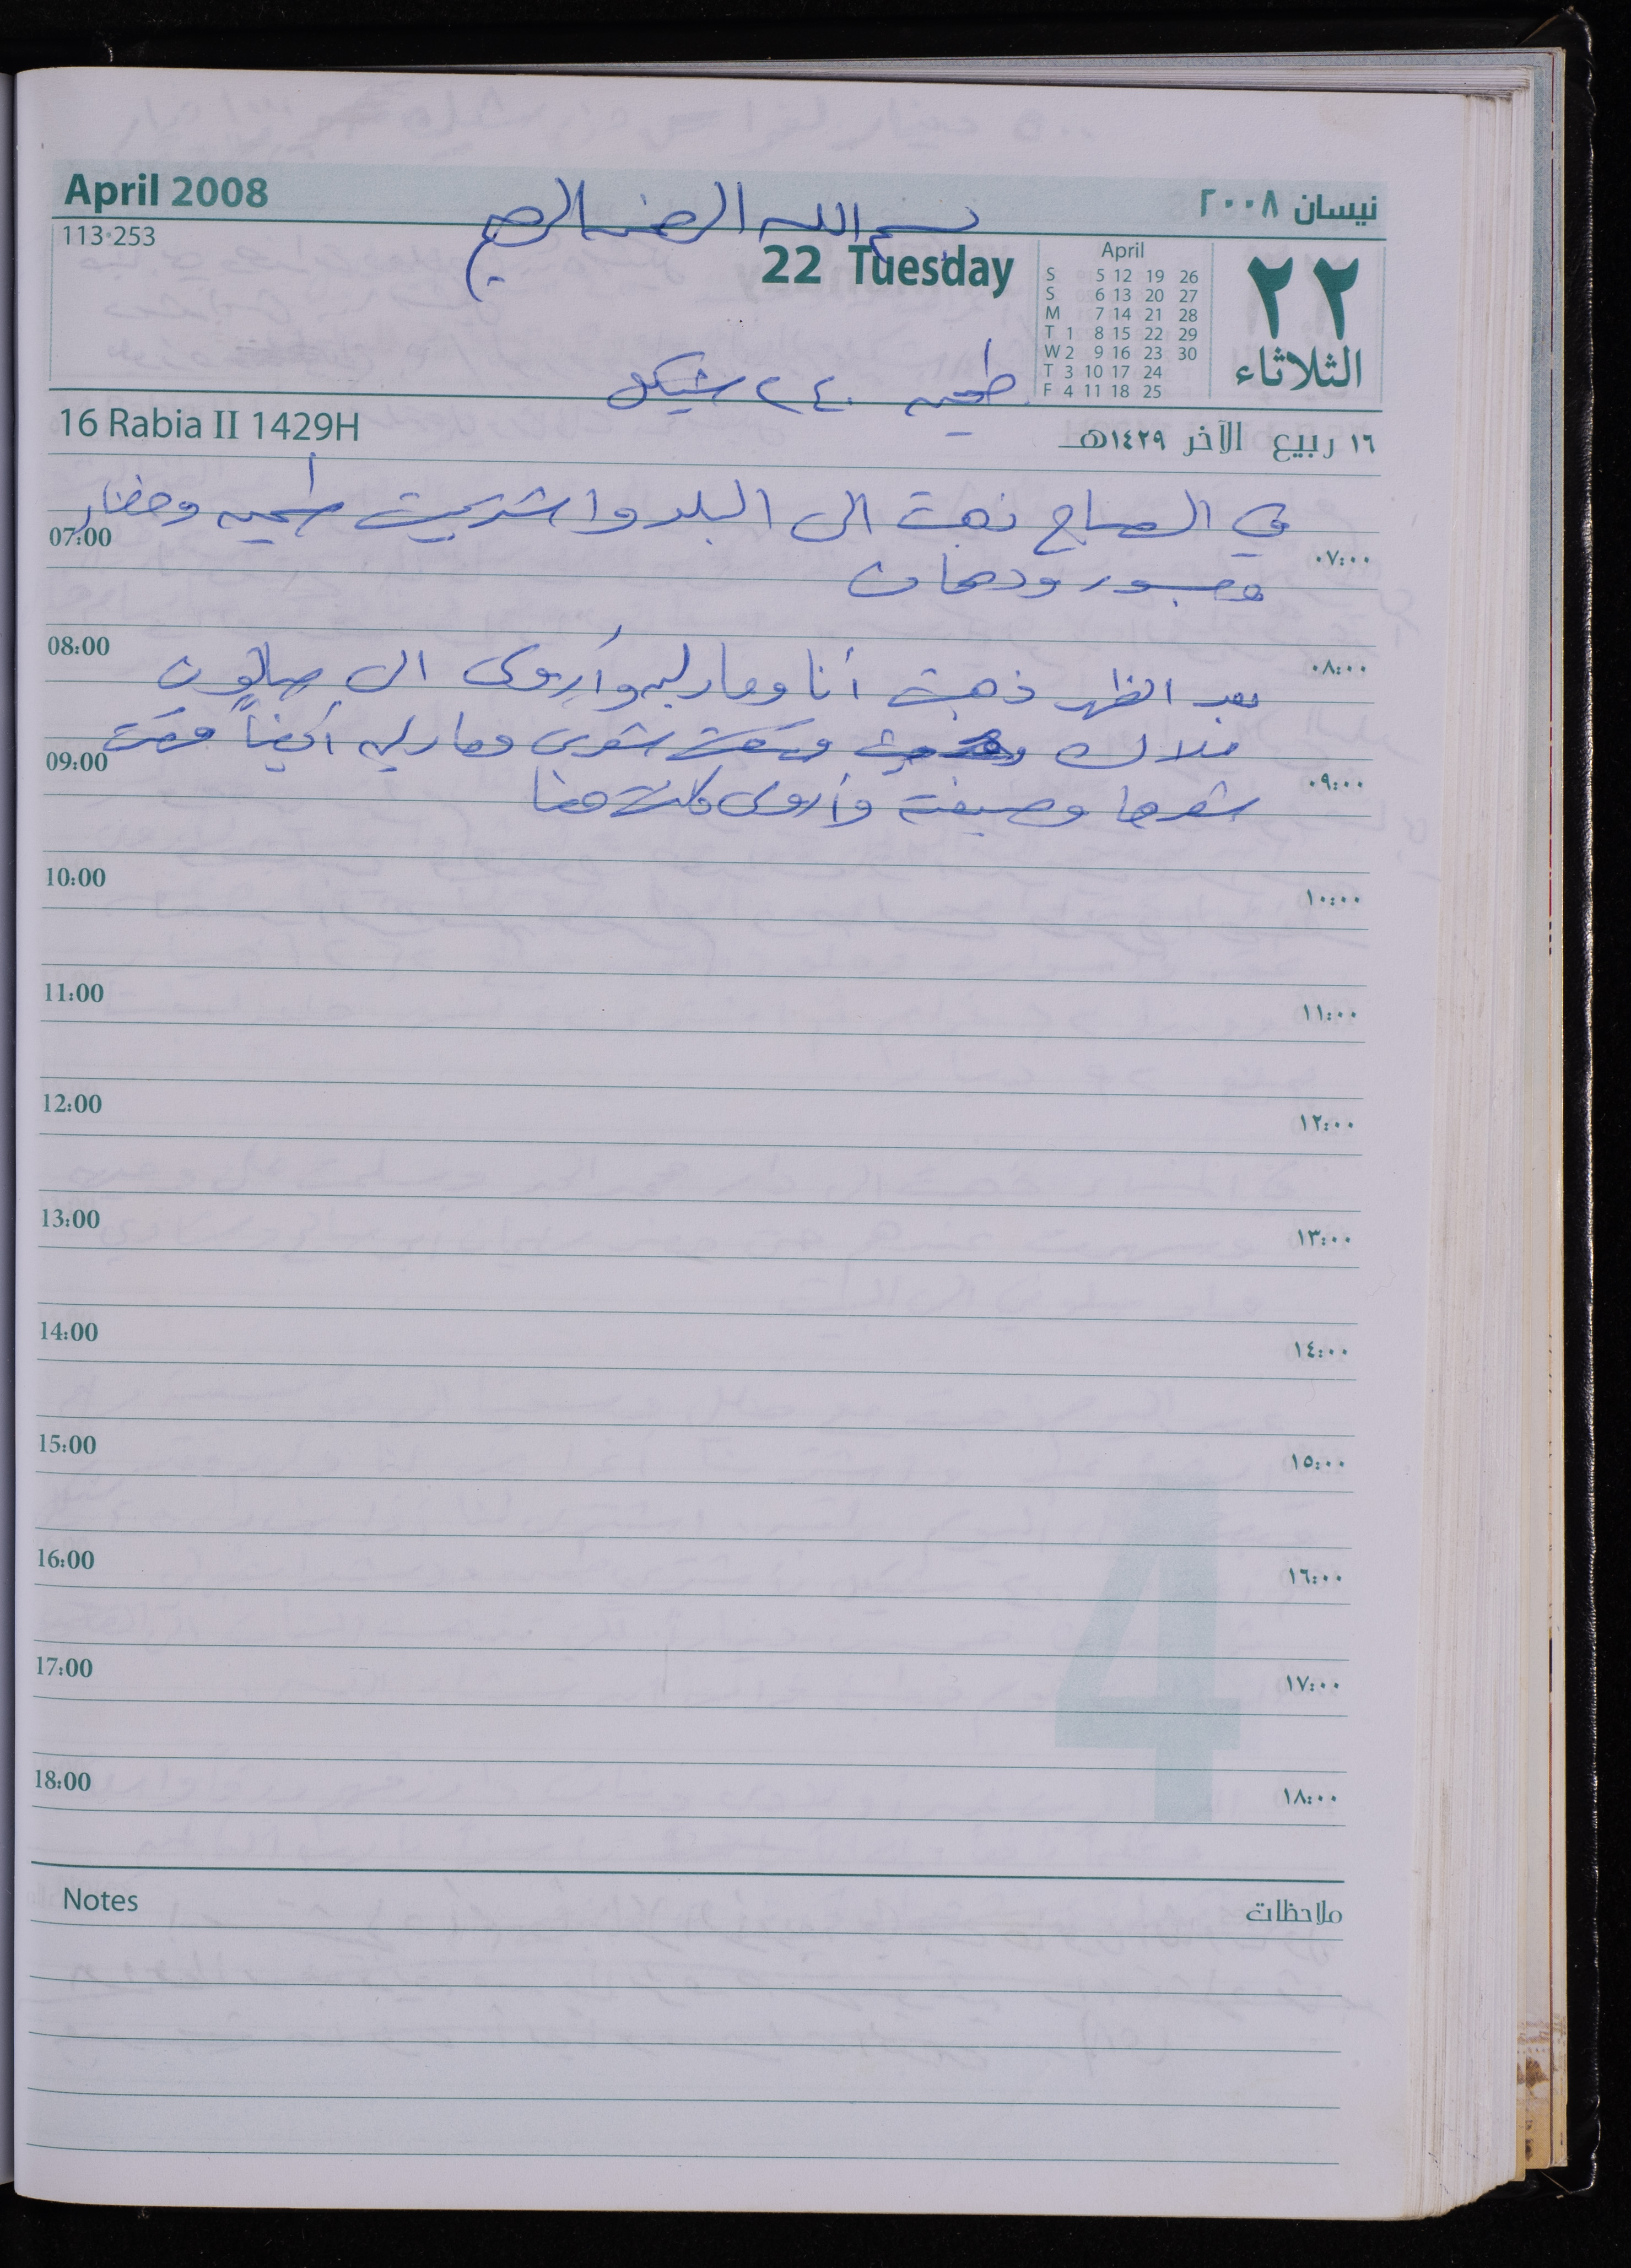 April 2008
نيسان ٢٠٠٨
بسم الله الرحمن الرحيم
113-253
22 Tuesday
April
S 5 12 19 26
S 6 13 20 27
M 7 14 21 28
T 1 8 15 22 29
W 2 9 16 23 30
T 3 10 17 24
F 4 11 18 25
٢٢
الثلاثاء
طحينه ٢٤٠ شيكل
16 Rabia II 1429H
١٦ ربيع الآخر ١٤٢٩هـ
في الصباح ذهبت الى البلد واشتريت طحينه وخضار
07:00 ٠٧:٠٠
ودهان
08:00 ٠٨:٠٠
بعد الظهر ذهبت أنا وماريه وأروى الى صالون
ملاك شعري وماريه أيضاً قصت
09:00 ٠٩:٠٠
شعرها وصبغت وأروى
10:00 ١٠:٠٠
11:00 ١١:٠٠
12:00 ١٢:٠٠
13:00 ١٣:٠٠
14:00 ١٤:٠٠
15:00 ١٥:٠٠
16:00 ١٦:٠٠
17:00 ١٧:٠٠
18:00 ١٨:٠٠
4
Notes
ملاحظات